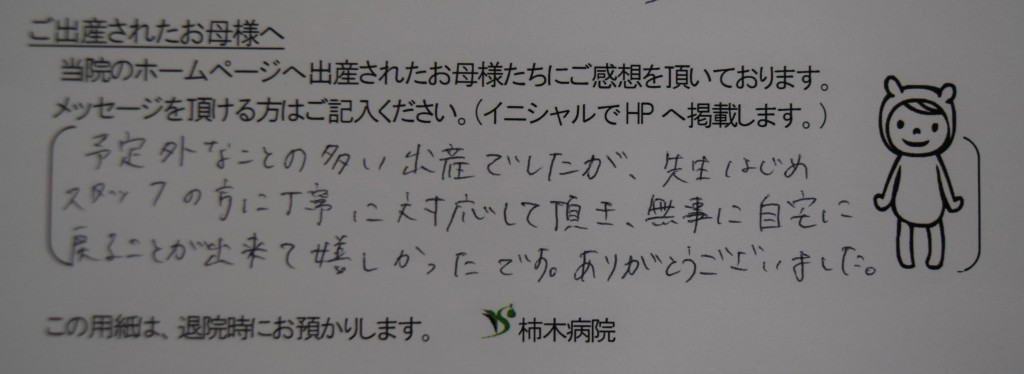 ご出産されたお母様へ
当院のホームページへ出産されたお母様たちにご感想を頂いております。
メッセージを頂ける方はご記入ください。(イニシャルでHPへ掲載します。)
予定外なことの多い出産でしたが、先生はじめ
スタッフの方に丁寧に対応して頂き、無事に自宅に
戻ることが出来て嬉しかったです。ありがとうございました。
この用紙は、退院時にお預かりします。
柿木病院